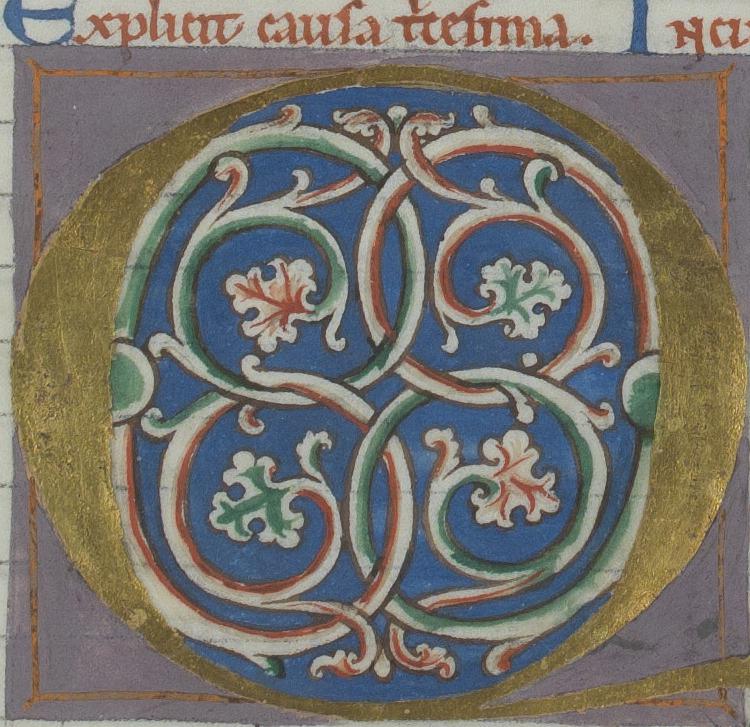 Explicit causa tͥcesima. Inci
Q